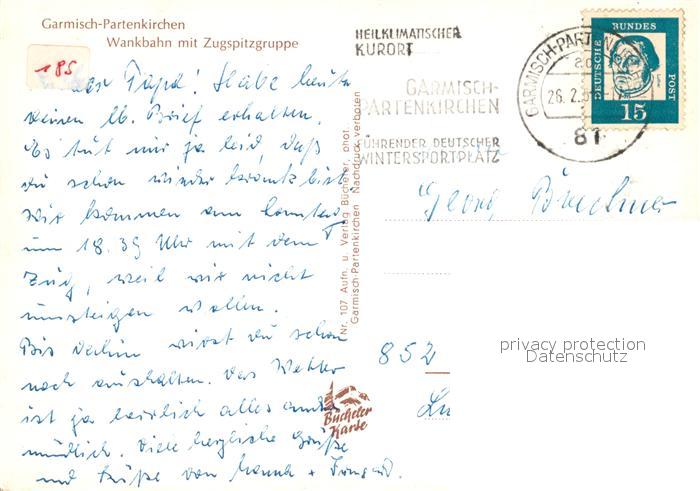 Garmisch-Partenkirchen
Wankbahn mit Zugspitzgruppe
185
Papa! Habe heute
deinen lb. Brief erhalten.
Es tut mir ja leid, daß
du schon wieder krank bist.
Wir kommen am Sonntag
um 18.39 Uhr mit dem
Zug, weil wir nicht
umsteigen wollen.
Bis dahin wirst du schon
noch aushalten. Das Wetter
ist ja herrlich alles andre
mündlich. Viele herzliche Grüße
und Küße von Mama + Irmgard.
Nr. 107 Aufn. u. Verlag Bücheler, phot.
Garmisch-Partenkirchen Nachdruck verboten
Bücheler
Karte
HEILKLIMATISCHER
KURORT
GARMISCH-
PARTENKIRCHEN
FÜHRENDER DEUTSCHER
WINTERSPORTPLATZ
GARMISCH-PARTEN
26. 2.
81
DEUTSCHE
BUNDES
POST
15
Georg
852
privacy protection
Datenschutz